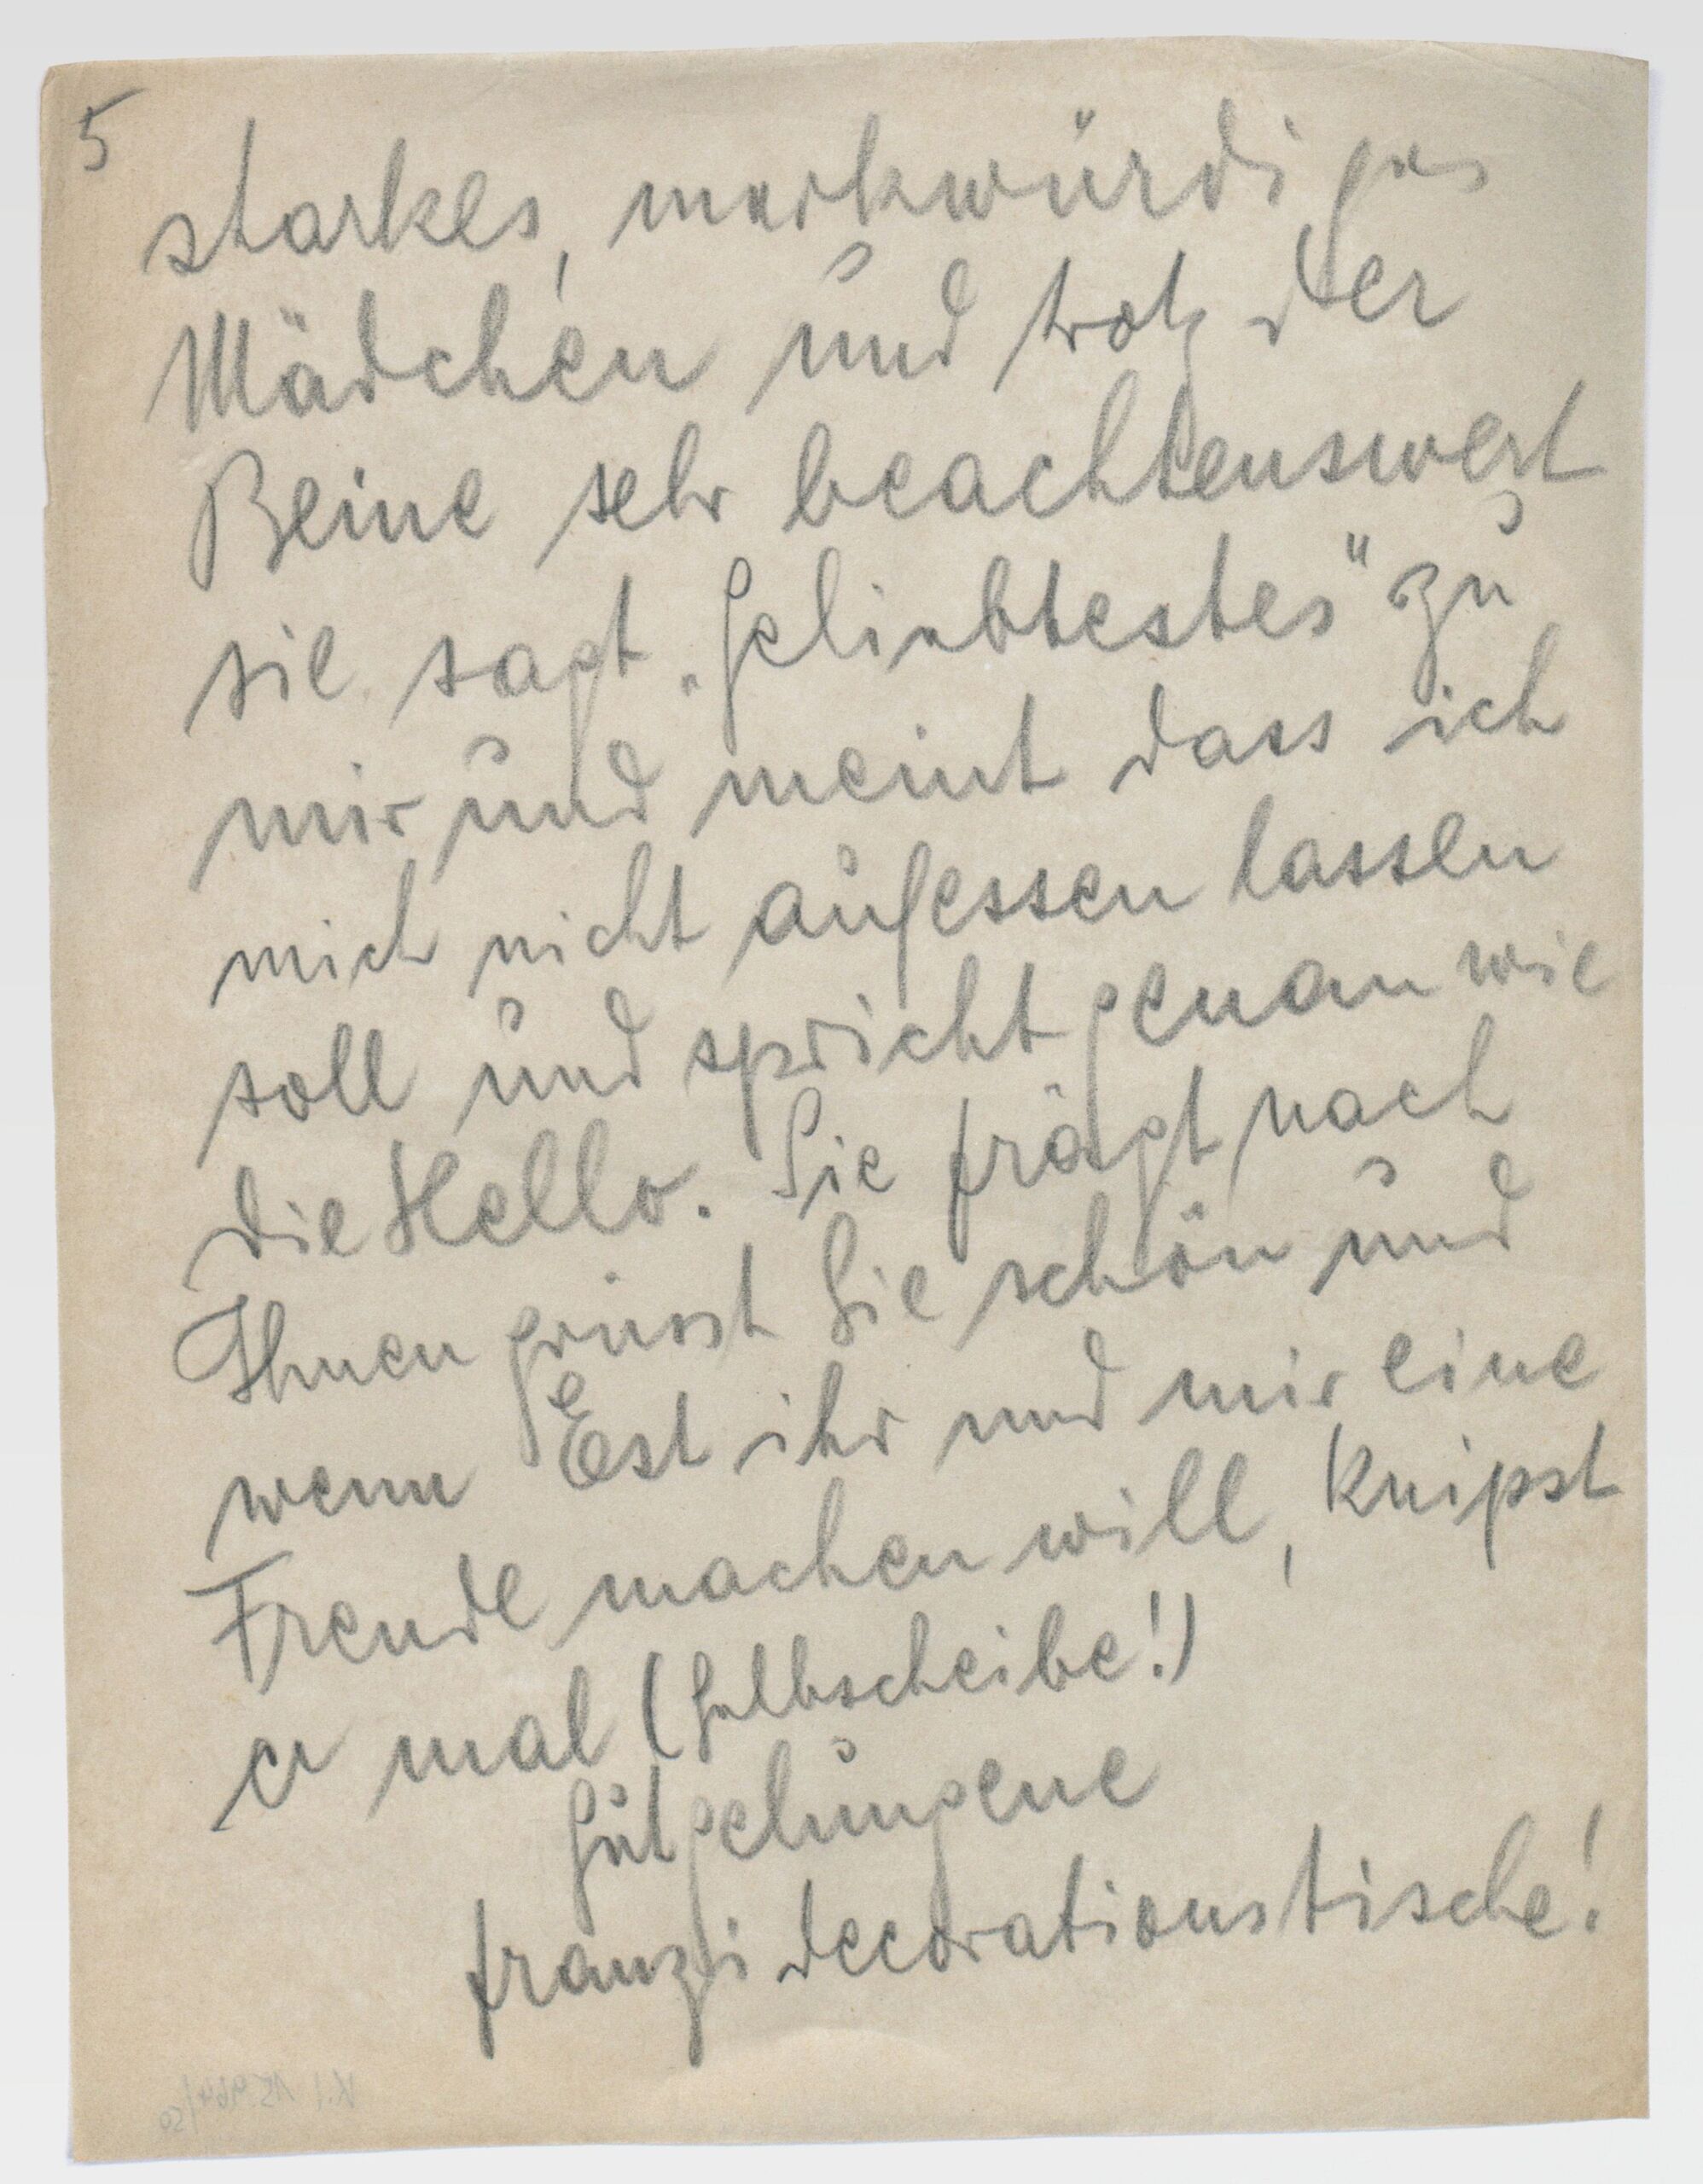 5
starkes, merkwürdiges
Mädchen und trotz der
Beine sehr beachtenswert
sie sagt „Geliebtestes" zu
mir und meint dass ich
mich nicht aufessen lassen
soll und spricht genau wie
die Hello. Sie frägt nach
Ihnen grüsst Sie schön und
wenn Est ihr und mir eine
Freude machen will, knipst
er mal (Gelbscheibe!)
Gutgelungene
franzsi decorationstische!